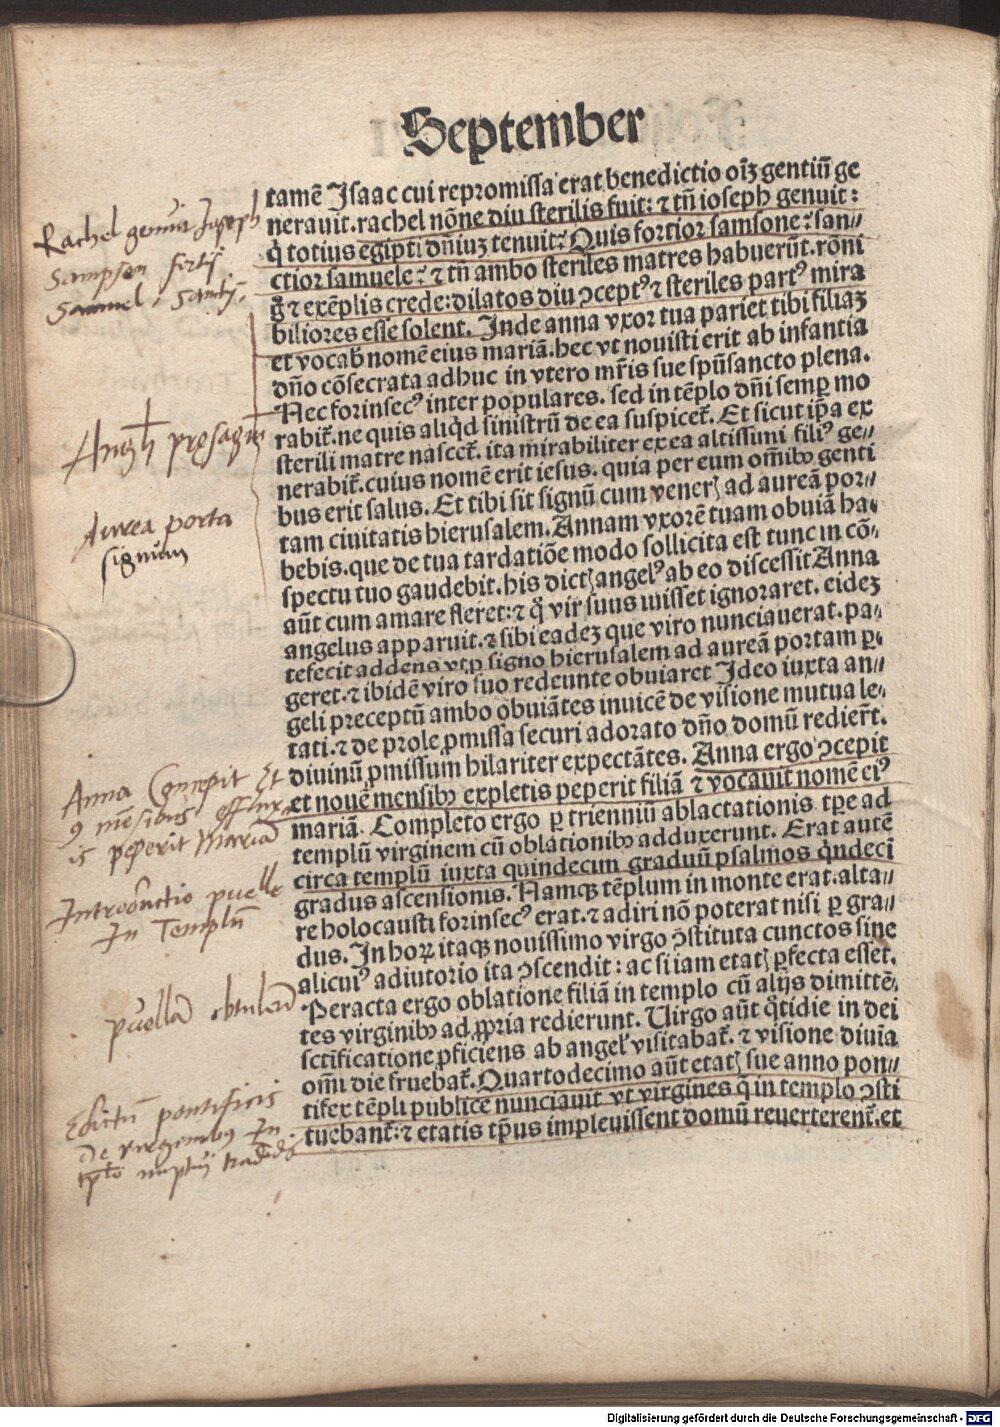 September
tamē Isaac cui repromissa erat benedictio oīz gentiū ge
nerauit.rachel nōne diu sterilis fuit: ⁊ tñ ioseph genuit:
q̇ totius egipti dñiuz tenuit? Quis fortior samsone? san⸗
ctior samuele? ⁊ tñ ambo steriles matres habuerūt.rōni
g̊ ⁊ exēplis crede:dilatos diu ↄceptꝰ ⁊ steriles partꝰ mira
biliores esse solent. Inde anna vxor tua pariet tibi filiaz
et vocab̄ nomē eius mariā.hec vt nouisti erit ab infantia
dño cōsecrata adhuc in vtero mr̄is sue spūsancto plena.
Nec forinsecꝰ inter populares. sed in tēplo dñi semꝑ mo
rabit᷑.ne quis aliqḋ sinistrū de ea suspicet᷑. Et sicut ip̄a ex
sterili matre nascet᷑. ita mirabiliter ex ea altissimi filiꝰ ge⸗
nerabit᷑.cuius nomē erit iesus. quia per eum om̄ibꝫ genti
bus erit salus. Et tibi sit signū cum venerꝭ ad aureā por⸗
tam ciuitatis hierusalem.Annam vxorē tuam obuiā ha⸗
bebis.que de tua tardatiōe modo sollicita est tunc in cō⸗
spectu tuo gaudebit.his dictꝭ angelꝰ ab eo discessit Anna
aūt cum amare fleret:⁊ q̇ vir suus iuisset ignoraret. eidez
angelus apparuit.⁊ sibi eadez que viro nunciauerat.pa⸗
tefecit addens vt ꝓ signo hierusalem ad aureā portam ꝑ⸗
geret.⁊ ibidē viro suo redeunte obuiaret Ideo iuxta an⸗
geli preceptū ambo obuiātes inuicē de visione mutua le⸗
tati.⁊ de prole ꝓmissa securi adorato dño domū redier̄t.
diuinū ꝓmissum hilariter expectātes. Anna ergo ↄcepit
et nouē mensibꝫ expletis peperit filiā ⁊ vocauit nomē eiꝰ
mariā. Completo ergo ꝑ trienniū ablactationis tꝑe ad
templū virginem cū oblationibꝫ adduxerunt. Erat autē
circa templū iuxta quindecim graduū psalmos q̇ndeci
gradus ascensionis. Namqꝫ tēplum in monte erat.alta⸗
re holocausti forinsecꝰ erat.⁊ adiri nō poterat nisi ꝑ gra⸗
dus. In hoꝝ itaqꝫ nouissimo virgo ↄstituta cunctos sine
alicuiꝰ adiutorio ita ↄscendit: ac si iam etatꝭ ꝑfecta esset.
Peracta ergo oblatione filiā in templo cū alijs dimittē⸗
tes virginibꝫ ad ꝓpria redierunt. Uirgo aūt q̇tidie in dei
sctīficatione ꝓficiens ab angelꝭ visitabat᷑. ⁊ visione diuīa
om̄i die fruebat᷑. Quartodecimo aūt etatꝭ sue anno pon⸗
tifex tēpli publice nunciauit vt virgines q̄ in templo ↄsti
tuebant᷑:⁊ etatis tp̄us impleuissent domū reuerterent᷑.et
Rachel genuit Joseph
Sampson fortis
Samuel
Angli presagiū
Aurea porta
signum
Anna Concepit Et
9 mēsibus
is peperit Mariā
Introductio puelle
In Templū
puellā obtulerūt
Edictū pontificis
De virginibus In
tplo
Digitalisierung gefördert durch die Deutsche Forschungsgemeinschaft - DFG